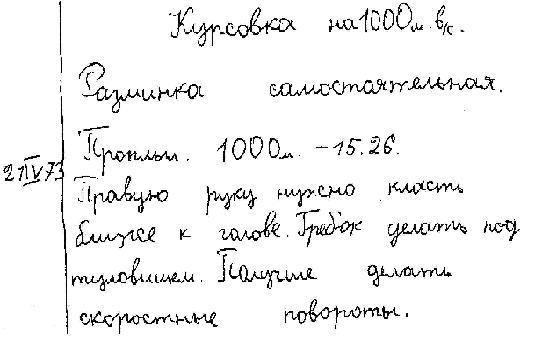 Курсовка на 1000 м. в/с.
Разминка самостоятельная.
Проплыл. 1000 м. - 15.26.
21 IV 73
Правую руку нужно класть
ближе к голове. Гребок делать под
туловищем. Получше делать
скоростные повороты.